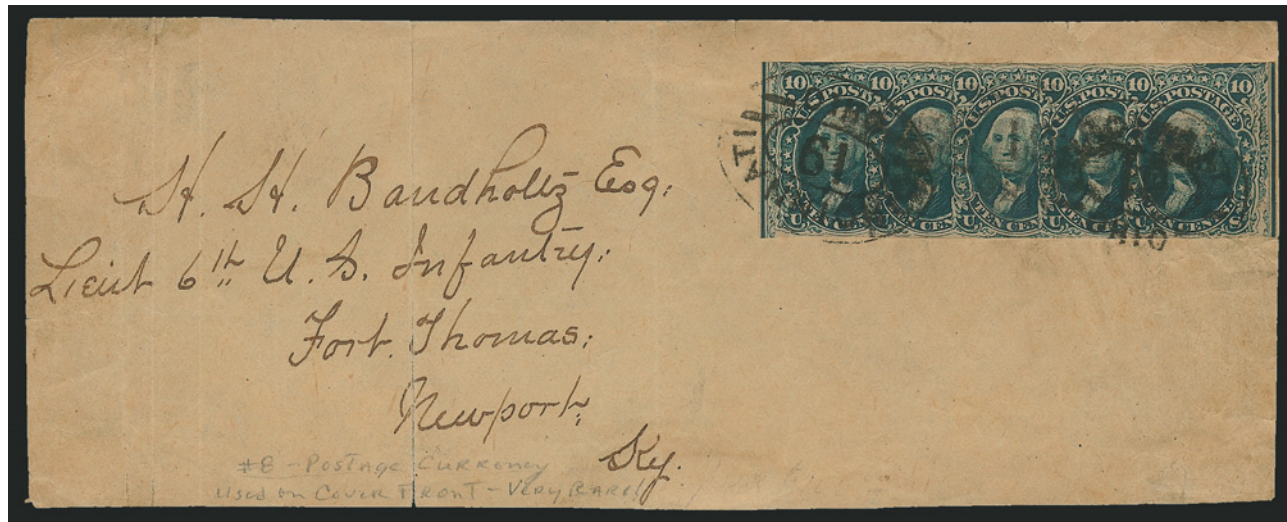 10 10 10 10 10
U.S. POSTAGE
H. H. Bandholtz Esq:
Lieut 6th U. S. Infantry:
Fort. Thomas:
Newport;
Ky.
#8 - Postage Currency
Used on Cover Front - Very Rare!